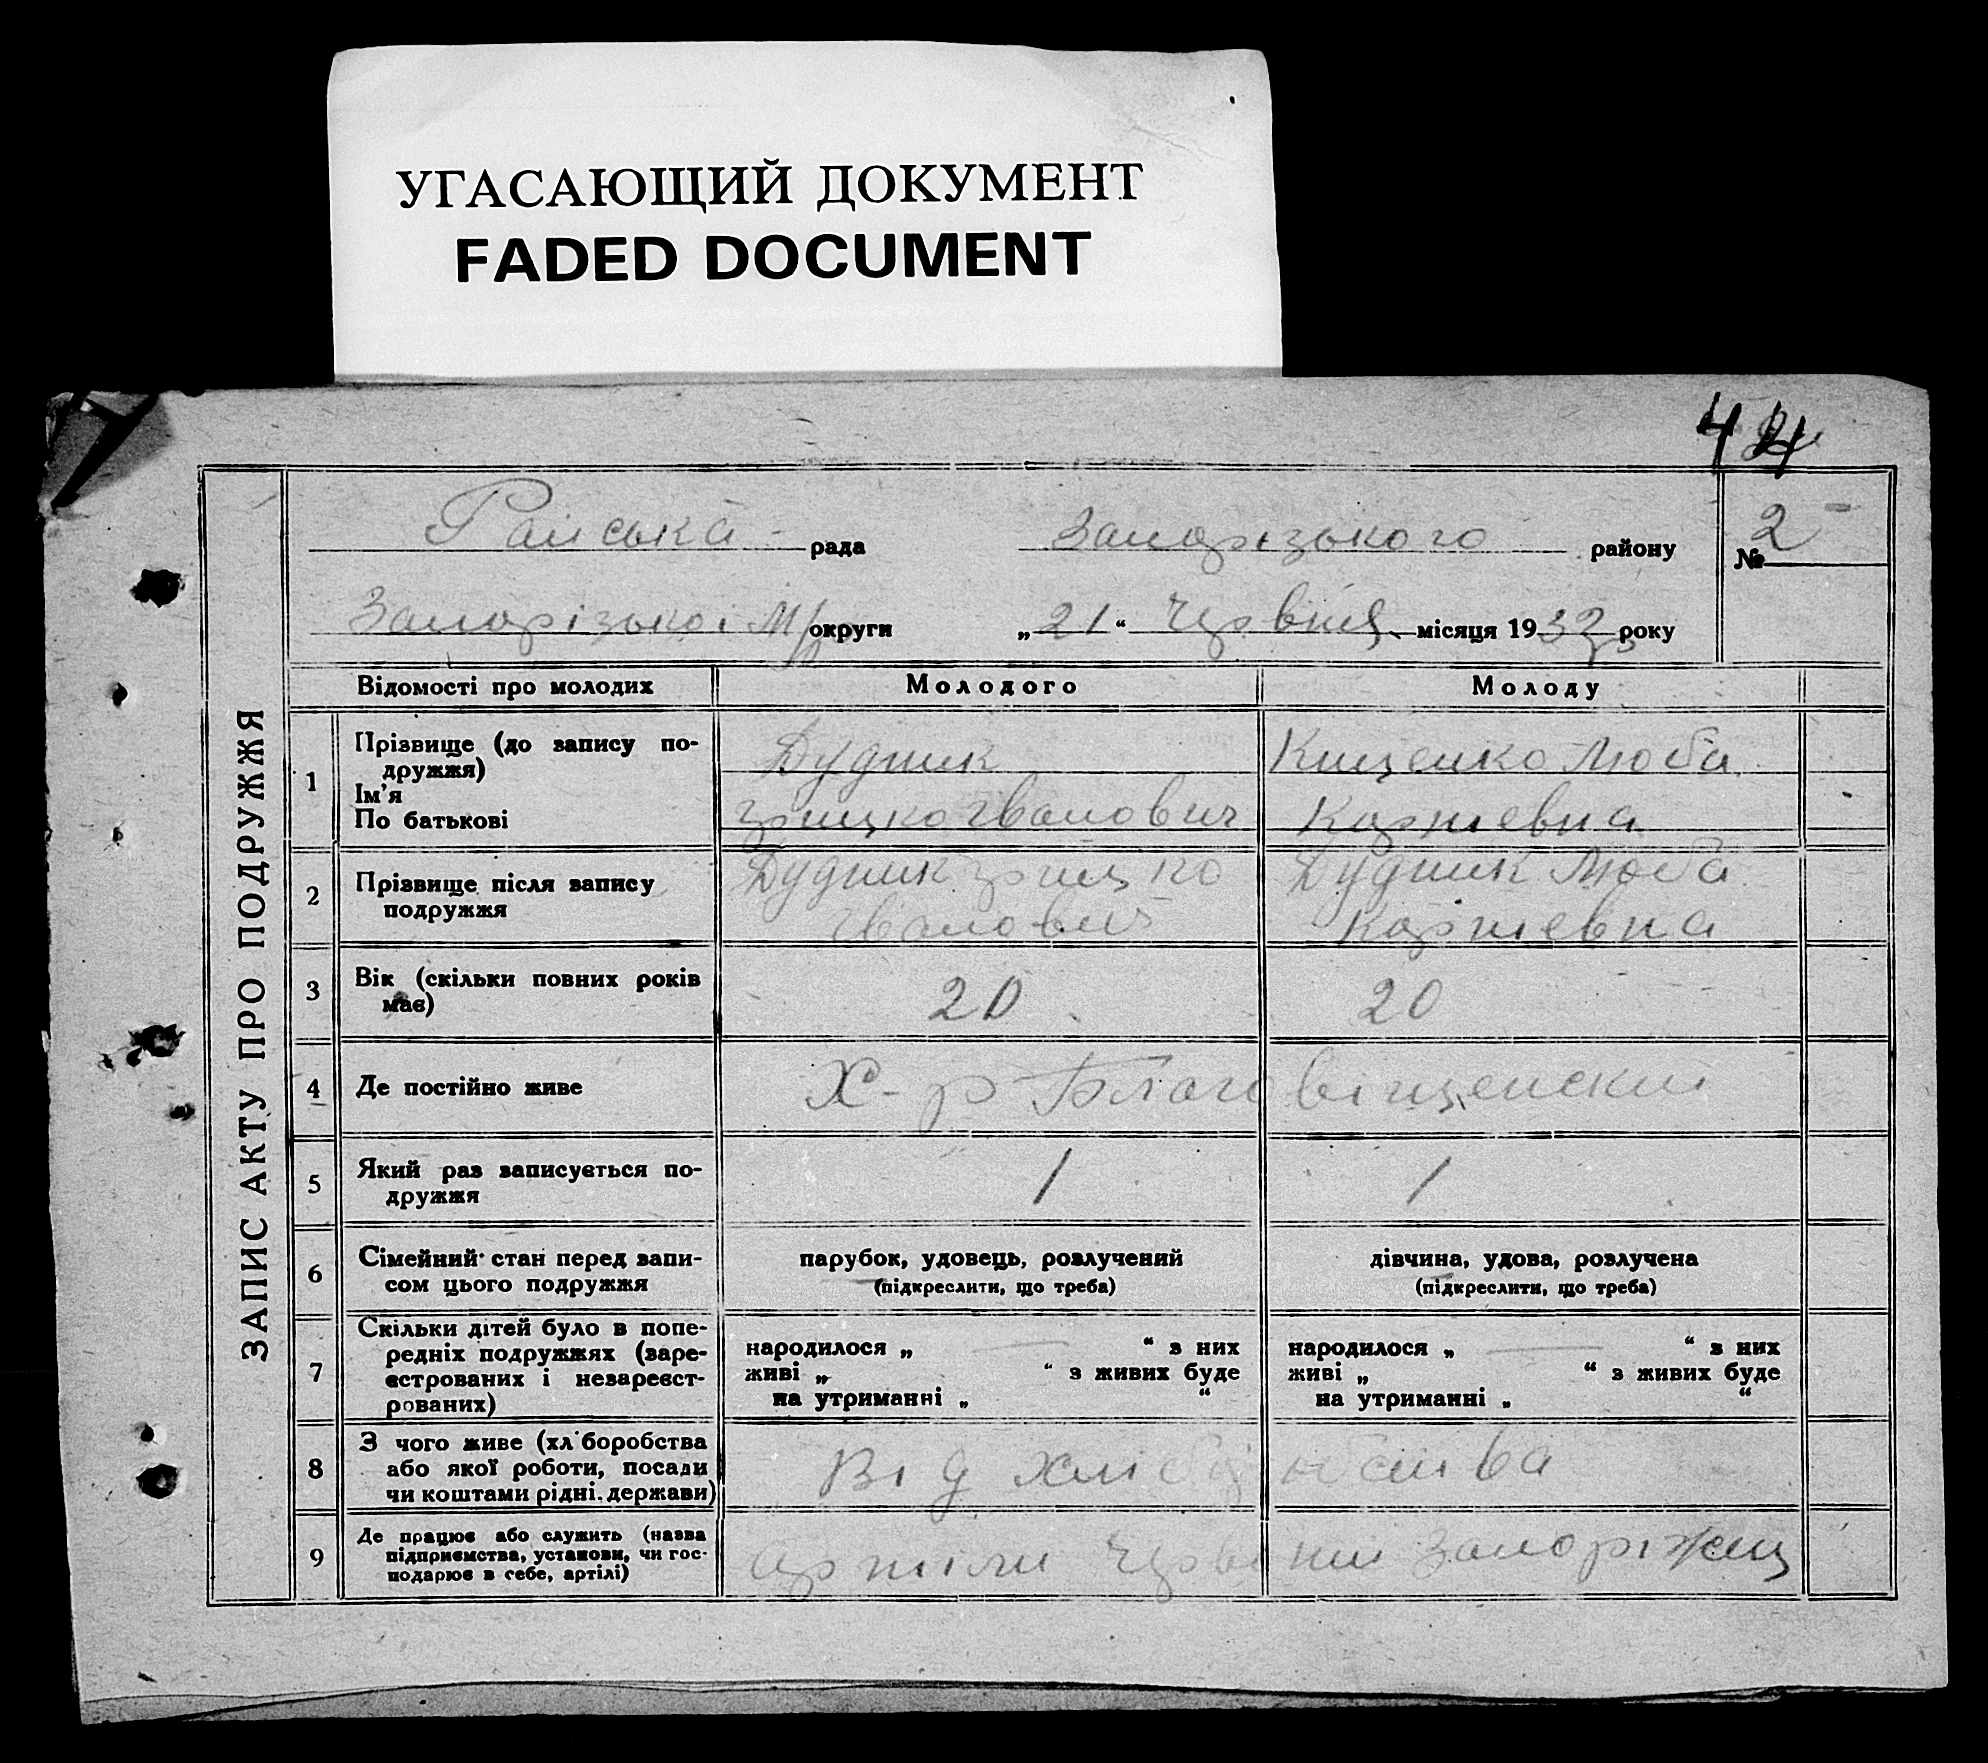 УГАСАЮЩИЙ ДОКУМЕНТ
FADED DOCUMENT
4
ЗАПИС АКТУ ПРО ПОДРУЖЖЯ
Райська рада Запорізького району № 2
Запорізької М/р округи „21“ Червня місяця 1932 року
Відомості про молодих Молодого Молоду
1 Прізвище (до запису по-
дружжя)
Ім'я
По батькові
Дудник
Грицко Іванович
Кищенко Люба
Карпіевна
2 Прізвище після запису
подружжя
Дудник Грицко
Іванович
Дудник Люба
Карпіевна
3 Вік (скільки повних років
має)
20 20
4 Де постійно живе Х-р Благовіщенский
5 Який раз записується по-
дружжя
1 1
6 Сімейний стан перед запи-
сом цього подружжя
парубок, удовець, розлучений
(підкреслити, що треба)
дівчина, удова, розлучена
(підкреслити, що треба)
7 Скільки дітей було в попе-
редніх подружжях (заре-
єстрованих і незареєст-
рованих)
народилося „ — “ з них
живі „ “ з живих буде
на утриманні „ “
народилося „ — “ з них
живі „ “ з живих буде
на утриманні „ “
8 З чого живе (хл боробства
або якої роботи, посади
чи коштами рідні. держави)
Від
9 Де працює або служить (назва
підприємства, установи, чи гос-
подарює в себе, артілі)
артіли Червоний Запоріжец